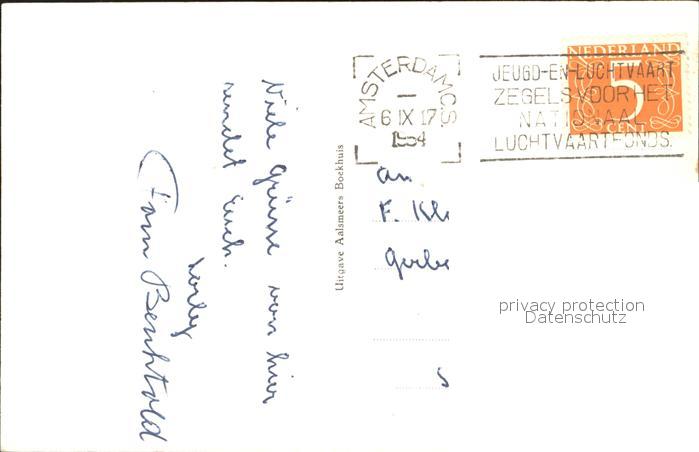 Viele Grüsse von hier
sendet Euch.
Fam Bechtold
Uitgave Aalsmeers Boekhuis
AMSTERDAM C.S.
6 IX 17
1954
JEUGD-EN-LUCHTVAART
ZEGELS VOOR HET
NATIONAAL
LUCHTVAARTFONDS.
NEDERLAND
5
CENT
An
F. Kl
Gerbe
s
privacy protection
Datenschutz